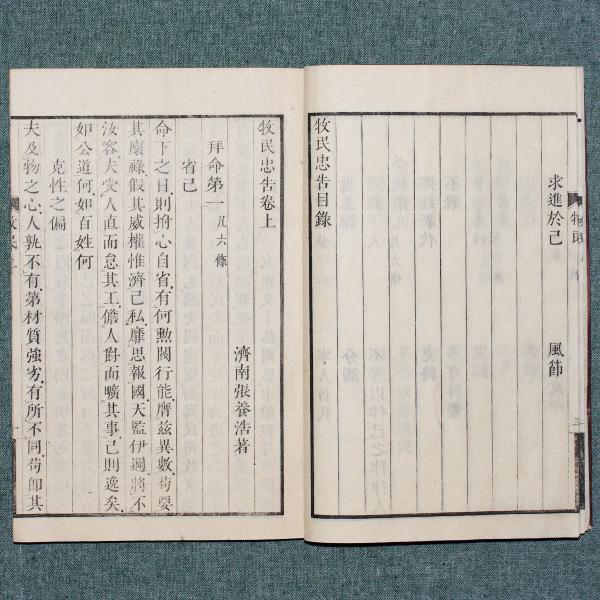 求進於己 風節
牧民忠告目錄
牧民忠告卷上
濟南張養浩著
拜命第一凡六條
省己
命下之日則拊心自省有何勲閥行能膺茲異數苟要
其廩祿假其威權惟濟己私靡思報國天監伊邇將不
汝容夫受人直而怠其工儋人爵而曠其事己則逸矣
如公道何如百姓何
克性之偏
夫及物之心人孰不有第材質強劣有所不同苟卽其